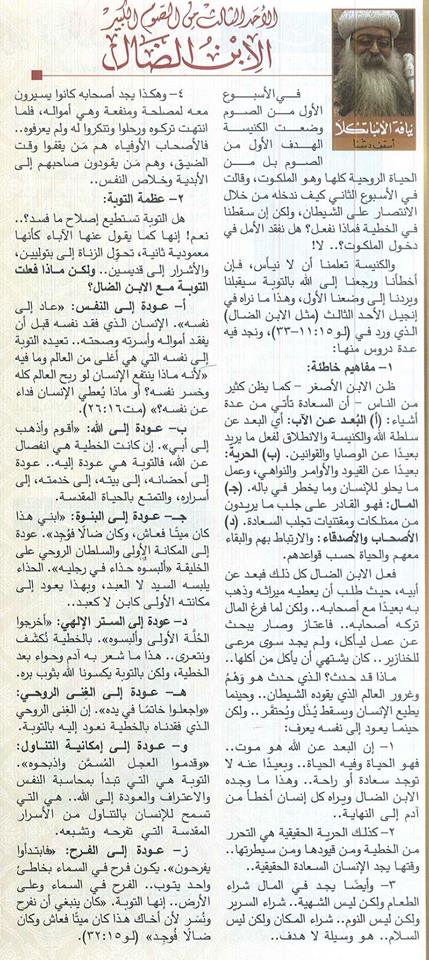 الأحد الثالث من الصوم الكبير
الابن الضال
نيافة الأنبا تكلا
أسقف دشنا
في الأسبوع
الأول من الصوم
وضعت الكنيسة
الهدف الأول من
الصوم بل من
الحياة الروحية كلها وهو الملكوت، وقالت
في الأسبوع الثاني كيف ندخله من خلال
الانتصار على الشيطان، ولكن إن سقطنا
في الخطية فماذا نفعل؟ هل نفقد الأمل في
دخول الملكوت؟.. لا!
والكنيسة تعلمنا أن لا نيأس، فإن
أخطأنا ورجعنا إلى الله بالتوبة سيقبلنا
ويردنا إلى وضعنا الأول، وهذا ما نراه في
إنجيل الأحد الثالث (مثل الابن الضال)
الذي ورد في (لو١١:١٥-٣٣)، ونجد فيه
عدة دروس منها:
١- مفاهيم خاطئة:
ظن الابن الأصغر – كما يظن كثير
من الناس – أن السعادة تأتي من عدة
أشياء: (أ) البُعد عن الآب: أي البعد عن
سلطة الله والكنيسة والانطلاق لفعل ما يريد
بعيدًا عن الوصايا والقوانين. (ب) الحرية:
بعيدًا عن القيود والأوامر والنواهي، وعمل
ما يحلو للإنسان وما يخطر في باله. (جـ)
المال: فهو القادر على جلب ما يريدون
من ممتلكات ومقتنيات تجلب السعادة. (د)
الأصحاب والأصدقاء: والارتباط بهم والبقاء
معهم والحياة حسب قواعدهم.
فعل الابن الضال كل ذلك فبعد عن
أبيه، حيث طلب أن يعطيه ميراثه وذهب
به بعيدًا مع أصحابه.. ولكن لما فرغ المال
تركه أصحابه.. فاعتاز وصار يبحث
عن عمل ليأكل، ولم يجد سوى مرعى
للخنازير.. كان يشتهي أن يأكل من أكلها..
ماذا قد حدث؟ الذي حدث هو وَهْم
وغرور العالم الذي يقوده الشيطان.. وحينما
يطيع الإنسان ويسقط يُذَل ويُحتقَر.. ولكن
حينما يعود إلى نفسه يعرف:
١- إن البعد عن الله هو موت..
فهو الحياة وفيه الحياة.. وبعيدًا عنه لا
توجد سعادة أو راحة.. وهذا ما وجده
الابن الضال ويراه كل إنسان أخطأ من
آدم إلى النهاية..
٢- كذلك الحرية الحقيقية هي التحرر
من الخطية ومن قيودها ومن سيطرتها..
وقتها يجد الإنسان السعادة الحقيقية..
٣- وأيضًا يجد في المال شراء
الطعام ولكن ليس الشهية.. شراء السرير
ولكن ليس النوم.. شراء المكان ولكن ليس
السلام.. هو وسيلة لا هدف..
٤- وهكذا يجد أصحابه كانوا يسيرون
معه لمصلحة ومنفعة وهي أمواله، فلما
انتهت تركوه ورحلوا وتنكروا له ولم يعرفوه..
فالأصحاب الأوفياء هم مَن يقفوا وقت
الضيق، وهم مَن يقودون صاحبهم إلى
الأبدية وخلاص النفس..
٢- عظمة التوبة:
هل التوبة تستطيع إصلاح ما فسد؟..
نعم! إنها كما يقول عنها الآباء كأنها
معمودية ثانية، تحوّل الزناة إلى بتوليين،
والأشرار إلى قديسين.. ولكن ماذا فعلت
التوبة مع الابن الضال؟
أ- عودة إلى النفس: «عاد إلى
نفسه». الإنسان الذي فقد نفسه قبل أن
يفقد أمواله وأسرته وصحته.. تعيده التوبة
إلى نفسه التي هي أغلى من العالم وما فيه
«لأنه ماذا ينتفع الإنسان لو ربح العالم كله
وخسر نفسه؟ أو ماذا يُعطي الإنسان فداء
عن نفسه؟» (مت٢٦:١٦).
ب- عودة إلى الله: «أقوم وأذهب
إلى أبي». إن كانت الخطية هي انفصال
عن الله، فالتوبة هي عودة إليه.. عودة
إلى أحضانه، إلى بيته، إلى خدمته، إلى
أسراره، والتمتع بالحياة المقدسة.
جـ- عودة إلى البنوة: «ابني هذا
كان ميتًا فعاش، وكان ضالًا فوُجد». عودة
إلى المكانة الأولى والسلطان الروحي على
الخليقة «ألبسوه حذاء في رجليه». الحذاء
يلبسه السيد لا العبد، وبهذا يعود إلى
مكانته الأولى كابن لا كعبد..
د- عودة إلى الستر الإلهي: «أخرجوا
الحُلّة الأولى وألبسوه». بالخطية نُكشَف
ونتعرى.. هذا ما شعر به آدم وحواء بعد
الخطية، ولكن بالتوبة يكسونا الله بثوب بره.
هـ- عودة إلى الغِنى الروحي:
«واجعلوا خاتمًا في يده». إن الغِنى الروحي
الذي فقدناه بالخطية نعود إليه بالتوبة.
و- عودة إلى إمكانية التناول:
«وقدموا العجل المُسمَّن واذبحوه».
التوبة هي التي تبدأ بمحاسبة النفس
والاعتراف والعودة إلى الله.. هي التي
تسمح للإنسان بالتناول من الأسرار
المقدسة التي تفرحه وتشبعه.
ز- عودة إلى الفرح: «فابتدأوا
يفرحون». يكون فرح في السماء بخاطئ
واحد يتوب.. الفرح في السماء وعلى
الأرض.. إنها التوبة. «كان ينبغي أن نفرح
ونُسَر لأن أخاك هذا كان ميتًا فعاش وكان
ضالًا فوُجِد» (لو٣٢:١٥).